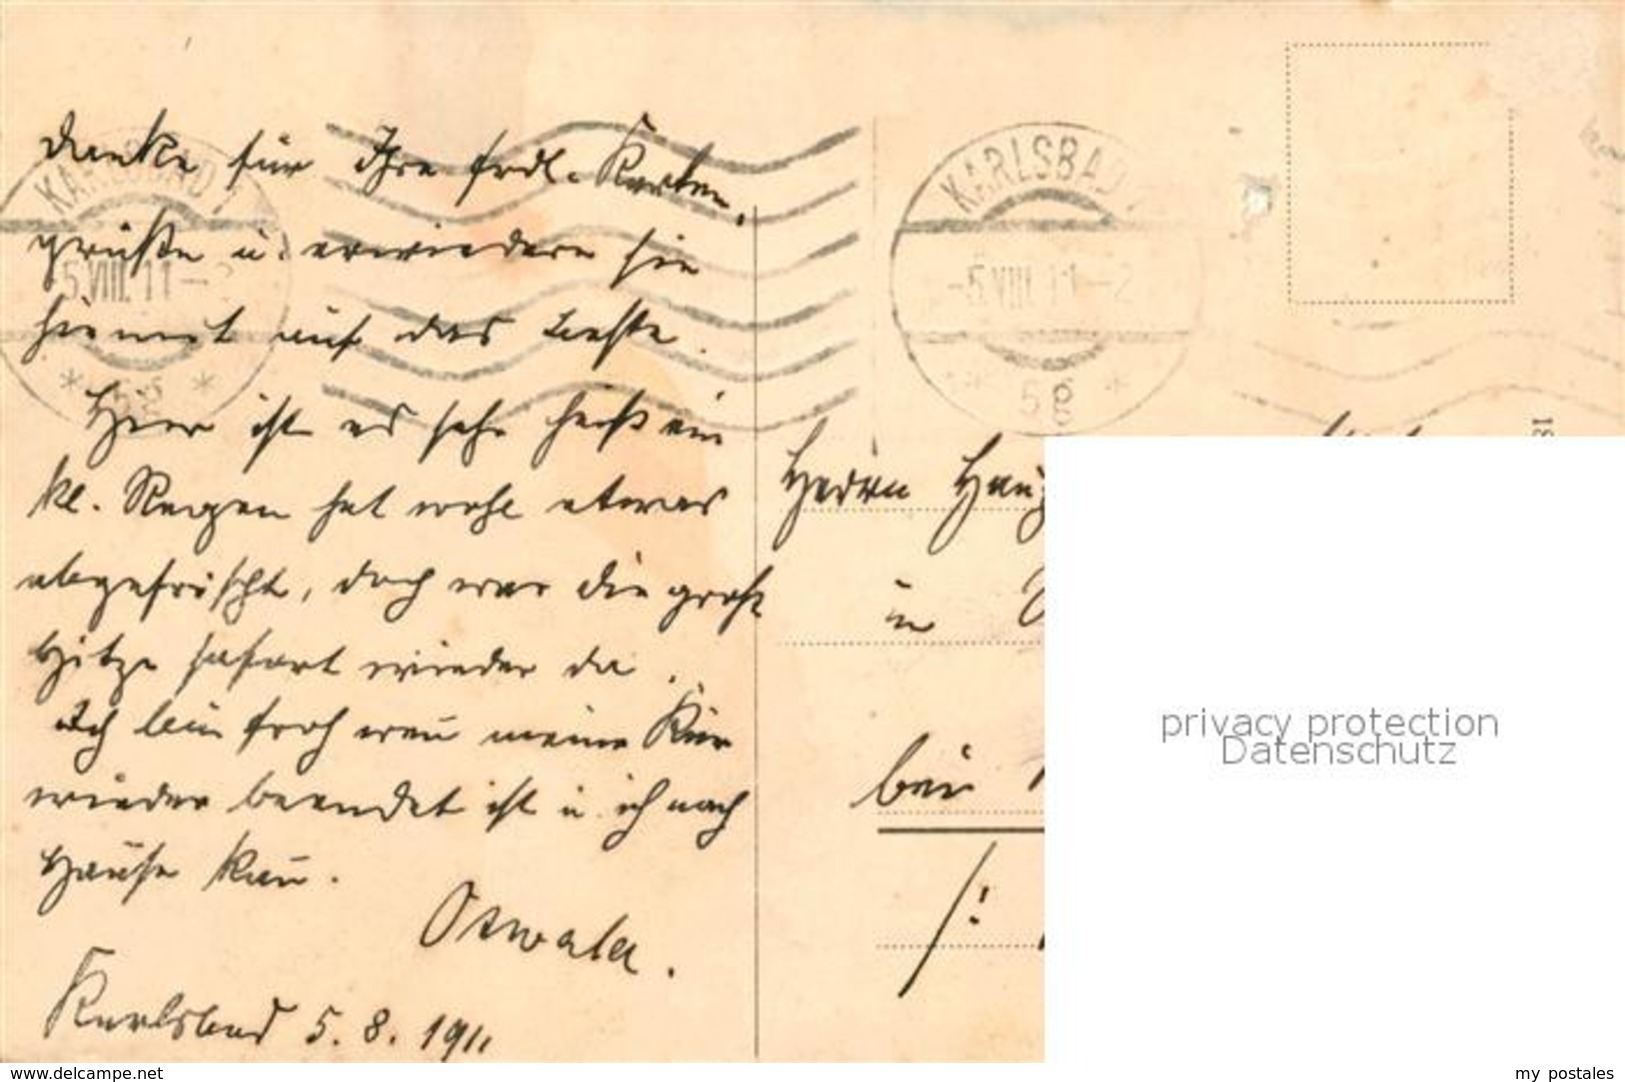 danke für Ihre frdl. Karten,
grüße u. erwiedere sie
hiermit auf das Beste.
Hier ist es sehr heiß ein
kl. Regen hat wohl etwas
abgefrischt, doch war die große
Hitze sofort wieder da.
Ich bin froh wen̄ meine Kur
wieder beendet ist u. ich nach
Hause kan̄.
Karlsbad 5.8.1911
KARLSBAD
-5.VIII.11-2
* 5g *
KARLSBAD
-5.VIII.11-2
* 5g *
Herrn
in
bei
/:
18
privacy protection
Datenschutz
www.delcampe.net
my postales